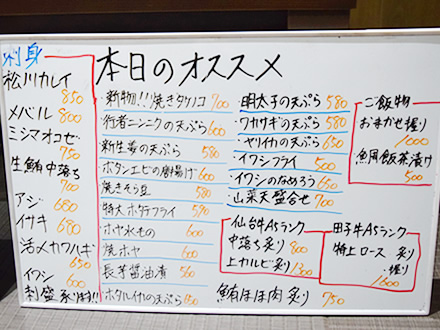 本日のオススメ
刺身
松川カレイ
850
メバル 800
ミシマオコゼ
750
生鮪中落ち
700
アジ 680
イサキ 680
活〆カワハギ
650
イワシ 600
刺盛承ります!!
新物!!焼きタケノコ 700
行者ニンニクの天ぷら 600
新生姜の天ぷら 580
ボタンエビの唐揚げ 600
焼きそら豆 580
特大ホタテフライ 570
ホヤ水もの 600
焼ホヤ 600
長芋醤油漬 560
ホタルイカの天ぷら
明太子の天ぷら 580
ワカサギの天ぷら 580
ヤリイカの天ぷら 650
イワシフライ 500
イワシのなめろう 650
山菜天盛合せ 700
仙台牛A5ランク
中落ち炙り 800
上カルビ炙り 1300
田子牛A5ランク
特上ロース 炙り
握り
1600
鮪ほほ肉炙り 750
ご飯物
おまかせ握り
1000
魚間飯茶漬け
500